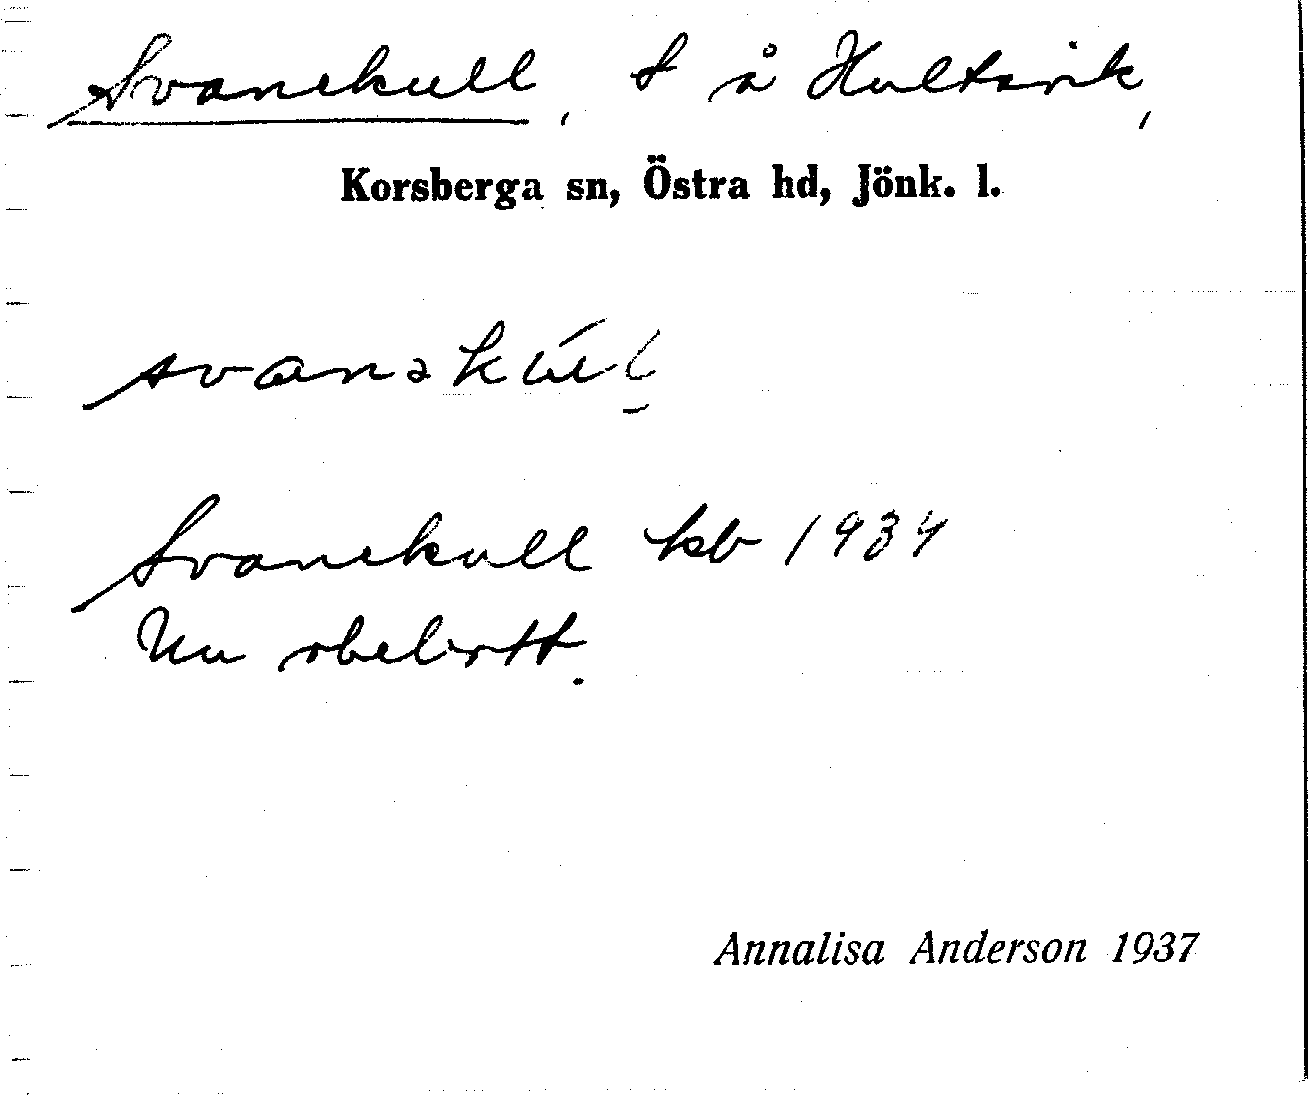 Svanekull, t å Hultsvik,
Korsberga sn, Östra hd, Jönk. l.
svanəkúl
Svanekull kb 1934
Nu obebott.
Annalisa Anderson 1937